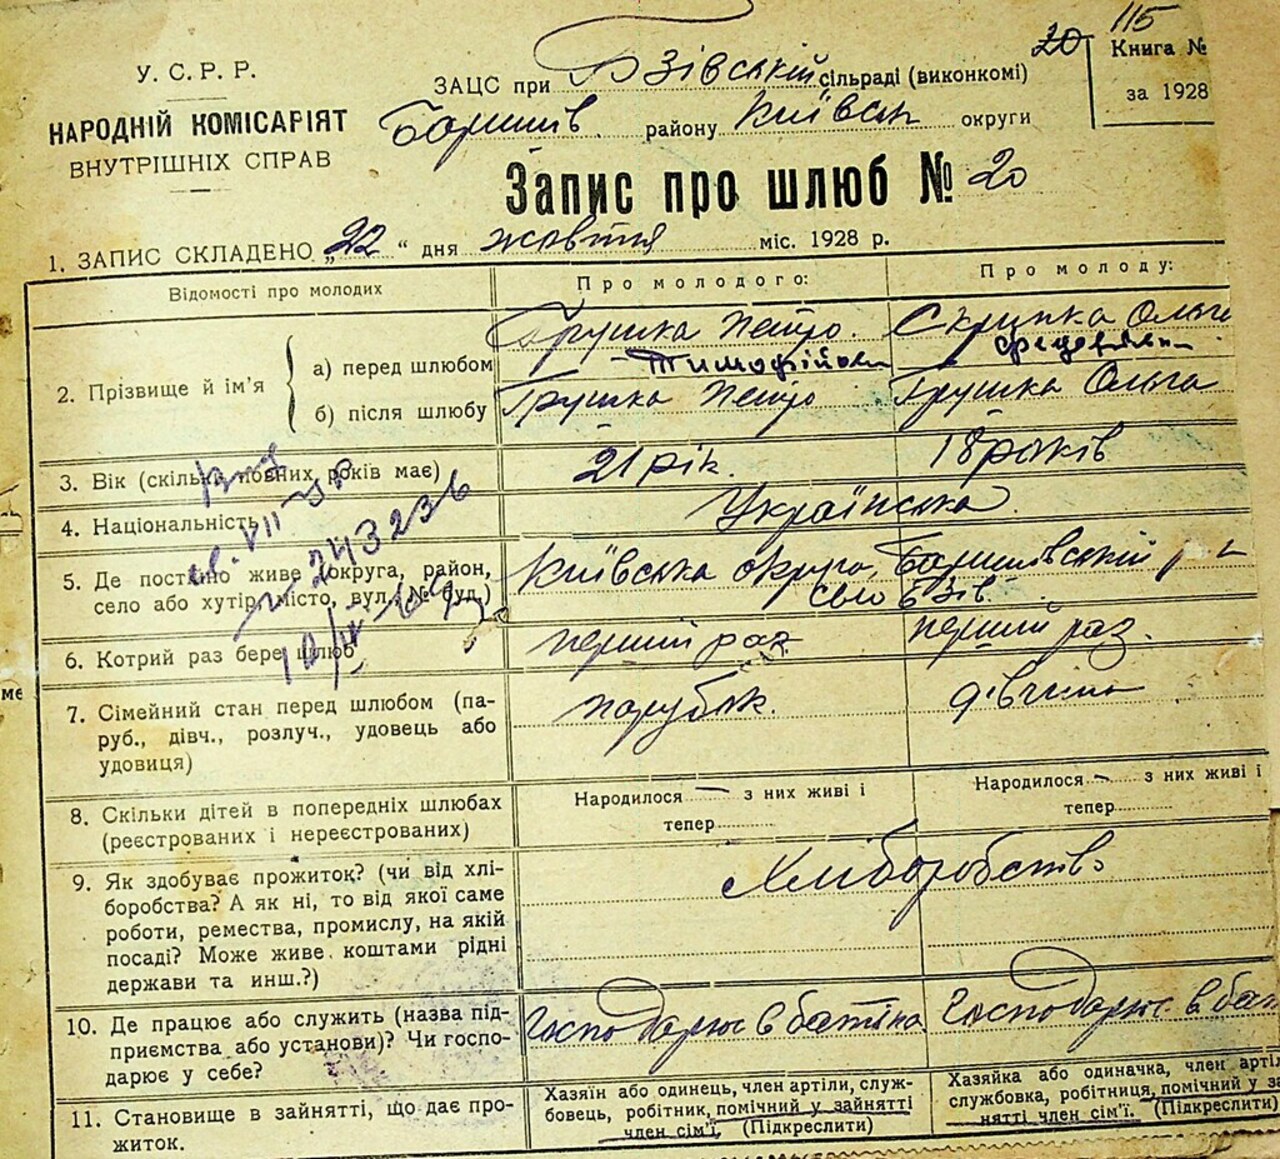 115
20
Книга №
за 1928
У. С. Р. Р.
НАРОДНІЙ КОМІСАРІЯТ
ВНУТРІШНІХ СПРАВ
ЗАЦС при Бзівській сільраді (виконкомі)
Баришів району Київськ округи
Запис про шлюб № 20
1. ЗАПИС СКЛАДЕНО „22“ дня жовтня міс. 1928 р.
Відомості про молодих
Про молодого:
Про молоду:
2. Прізвище й ім'я
а) перед шлюбом
Грушка Петро.
Тимофійови
Скрипка Ольга
б) після шлюбу
Грушка Петро
Грушка Ольга
3. Вік (скільки повних років має)
21 рік.
18 років
4. Національність
Українська.
5. Де постійно живе (округа, район,
село або хутір, місто, вул., № буд.)
Київська округа, Баришівський
село Бзів.
243236
6. Котрий раз бере шлюб
перший раз
перший раз.
7. Сімейний стан перед шлюбом (па-
руб., дівч., розлуч., удовець або
удовиця)
парубок.
дівчина
8. Скільки дітей в попередніх шлюбах
(реєстрованих і нереєстрованих)
Народилося — з них живі і
тепер
Народилося — з них живі і
тепер
9. Як здобуває прожиток? (чи від хлі-
боробства? А як ні, то від якої саме
роботи, ремества, промислу, на якій
посаді? Може живе коштами рідні
держави та инш.?)
Хліборобство
10. Де працює або служить (назва під-
приємства або установи)? Чи госпо-
дарює у себе?
Господарює в батька
Господарює в бат
11. Становище в зайнятті, що дає про-
житок.
Хазяїн або одинець, член артіли, служ-
бовець, робітник, помічний у зайнятті
член сім'ї. (Підкреслити)
Хазяйка або одиначка, член артіл
службовка, робітниця, помічний у за
нятті член сім'ї. (Підкреслити)